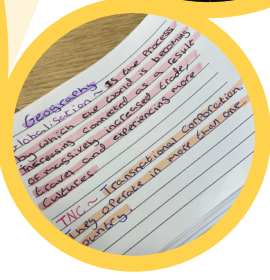 Geography
Globalisation ~ Is the process
by which the world is becoming
increasing connected as a result
of massively increased trade,
travel and experiencing more
cultures.
TNC ~ Transnational corporation.
They operate in more than one
country.